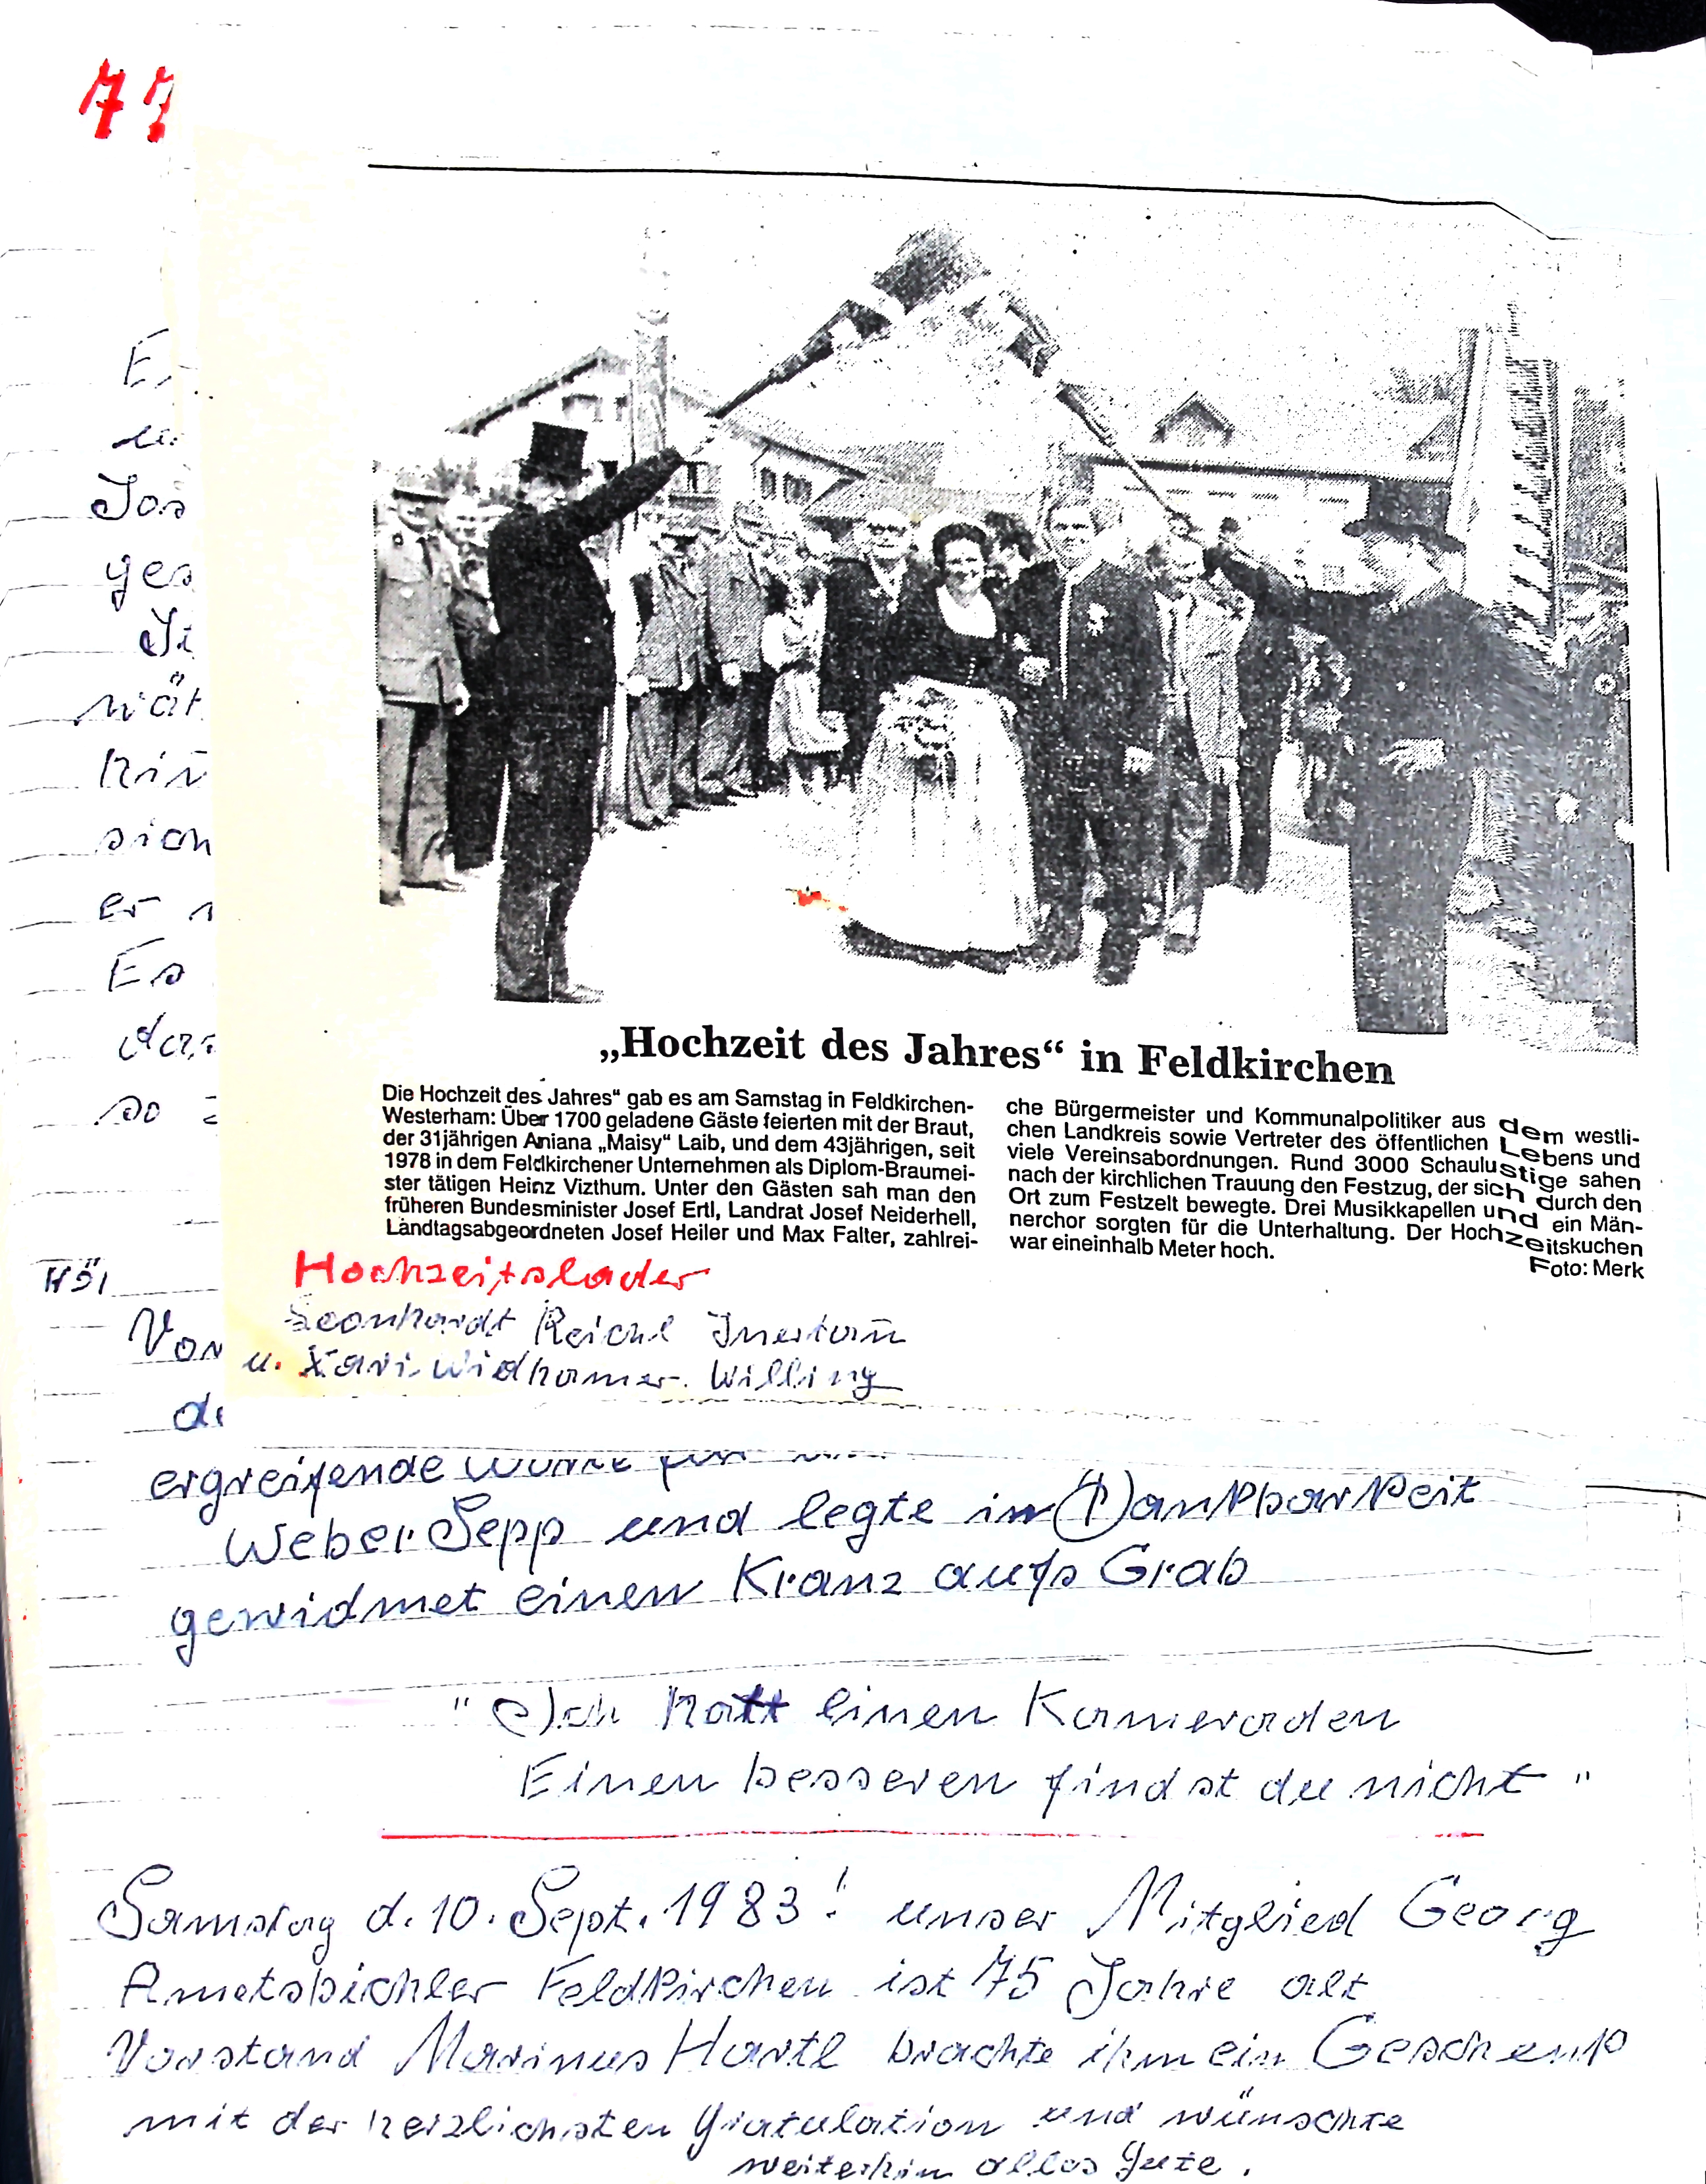 77
Jos
ges
nät
sich
er
Es
so
„Hochzeit des Jahres“ in Feldkirchen
Die Hochzeit des Jahres“ gab es am Samstag in Feldkirchen-
Westerham: Über 1700 geladene Gäste feierten mit der Braut,
der 31jährigen Aniana „Maisy“ Laib, und dem 43jährigen, seit
1978 in dem Feldkirchener Unternehmen als Diplom-Braumei-
ster tätigen Heinz Vizthum. Unter den Gästen sah man den
früheren Bundesminister Josef Ertl, Landrat Josef Neiderhell,
Landtagsabgeordneten Josef Heiler und Max Falter, zahlrei-
che Bürgermeister und Kommunalpolitiker aus dem westli-
chen Landkreis sowie Vertreter des öffentlichen Lebens und
viele Vereinsabordnungen. Rund 3000 Schaulustige sahen
nach der kirchlichen Trauung den Festzug, der sich durch den
Ort zum Festzelt bewegte. Drei Musikkapellen und ein Män-
nerchor sorgten für die Unterhaltung. Der Hochzeitskuchen
war eineinhalb Meter hoch.
Foto: Merk
Hochzeitslader
Leonhardt Reichl
u. Xari Widhamer. Willing
Von
ergreifende Worte für
Weber Sepp und legte in Dankbarkeit
gewidmet einen Kranz aufs Grab
" Ich hatt einen Kameraden
Einen besseren findst du nicht "
Samstag d. 10. Sept. 1983! unser Mitglied Georg
Ametsbichler Feldkirchen ist 75 Jahre alt
Vorstand Marinus Hartl brachte ihm ein Geschenk
mit der herzlichsten Gratulation und wünschte
weiterhin alles Gute.